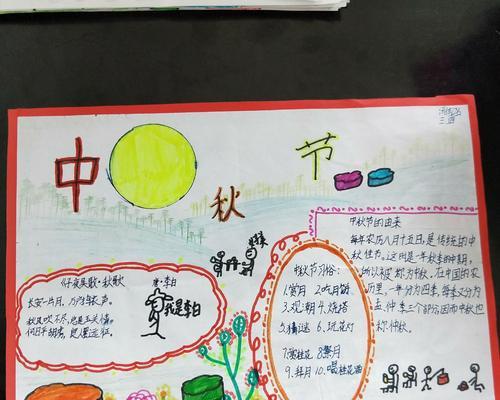 中
秋
节
三四
《子夜吴歌·秋歌》
唐·李白
长安一片月，万户捣衣声。
秋风吹不尽，总是玉关情。
何日平胡虏，良人罢远征。
我是李白
中秋节习俗：
1.赏月 2.吃月饼
3.观潮 4.烧塔
5.猜谜 6.玩花灯
7.赏桂花 8.祭月
9.拜月 10.喝桂花酒
中秋节的由来
每年农历八月十五日，是传统的中
秋佳节。这时是一年秋季的中期，
所以被称为中秋。在中国的农
历里，一年分为四季，每季又分为
孟、仲、季三个部分，因而中秋也
称仲秋。